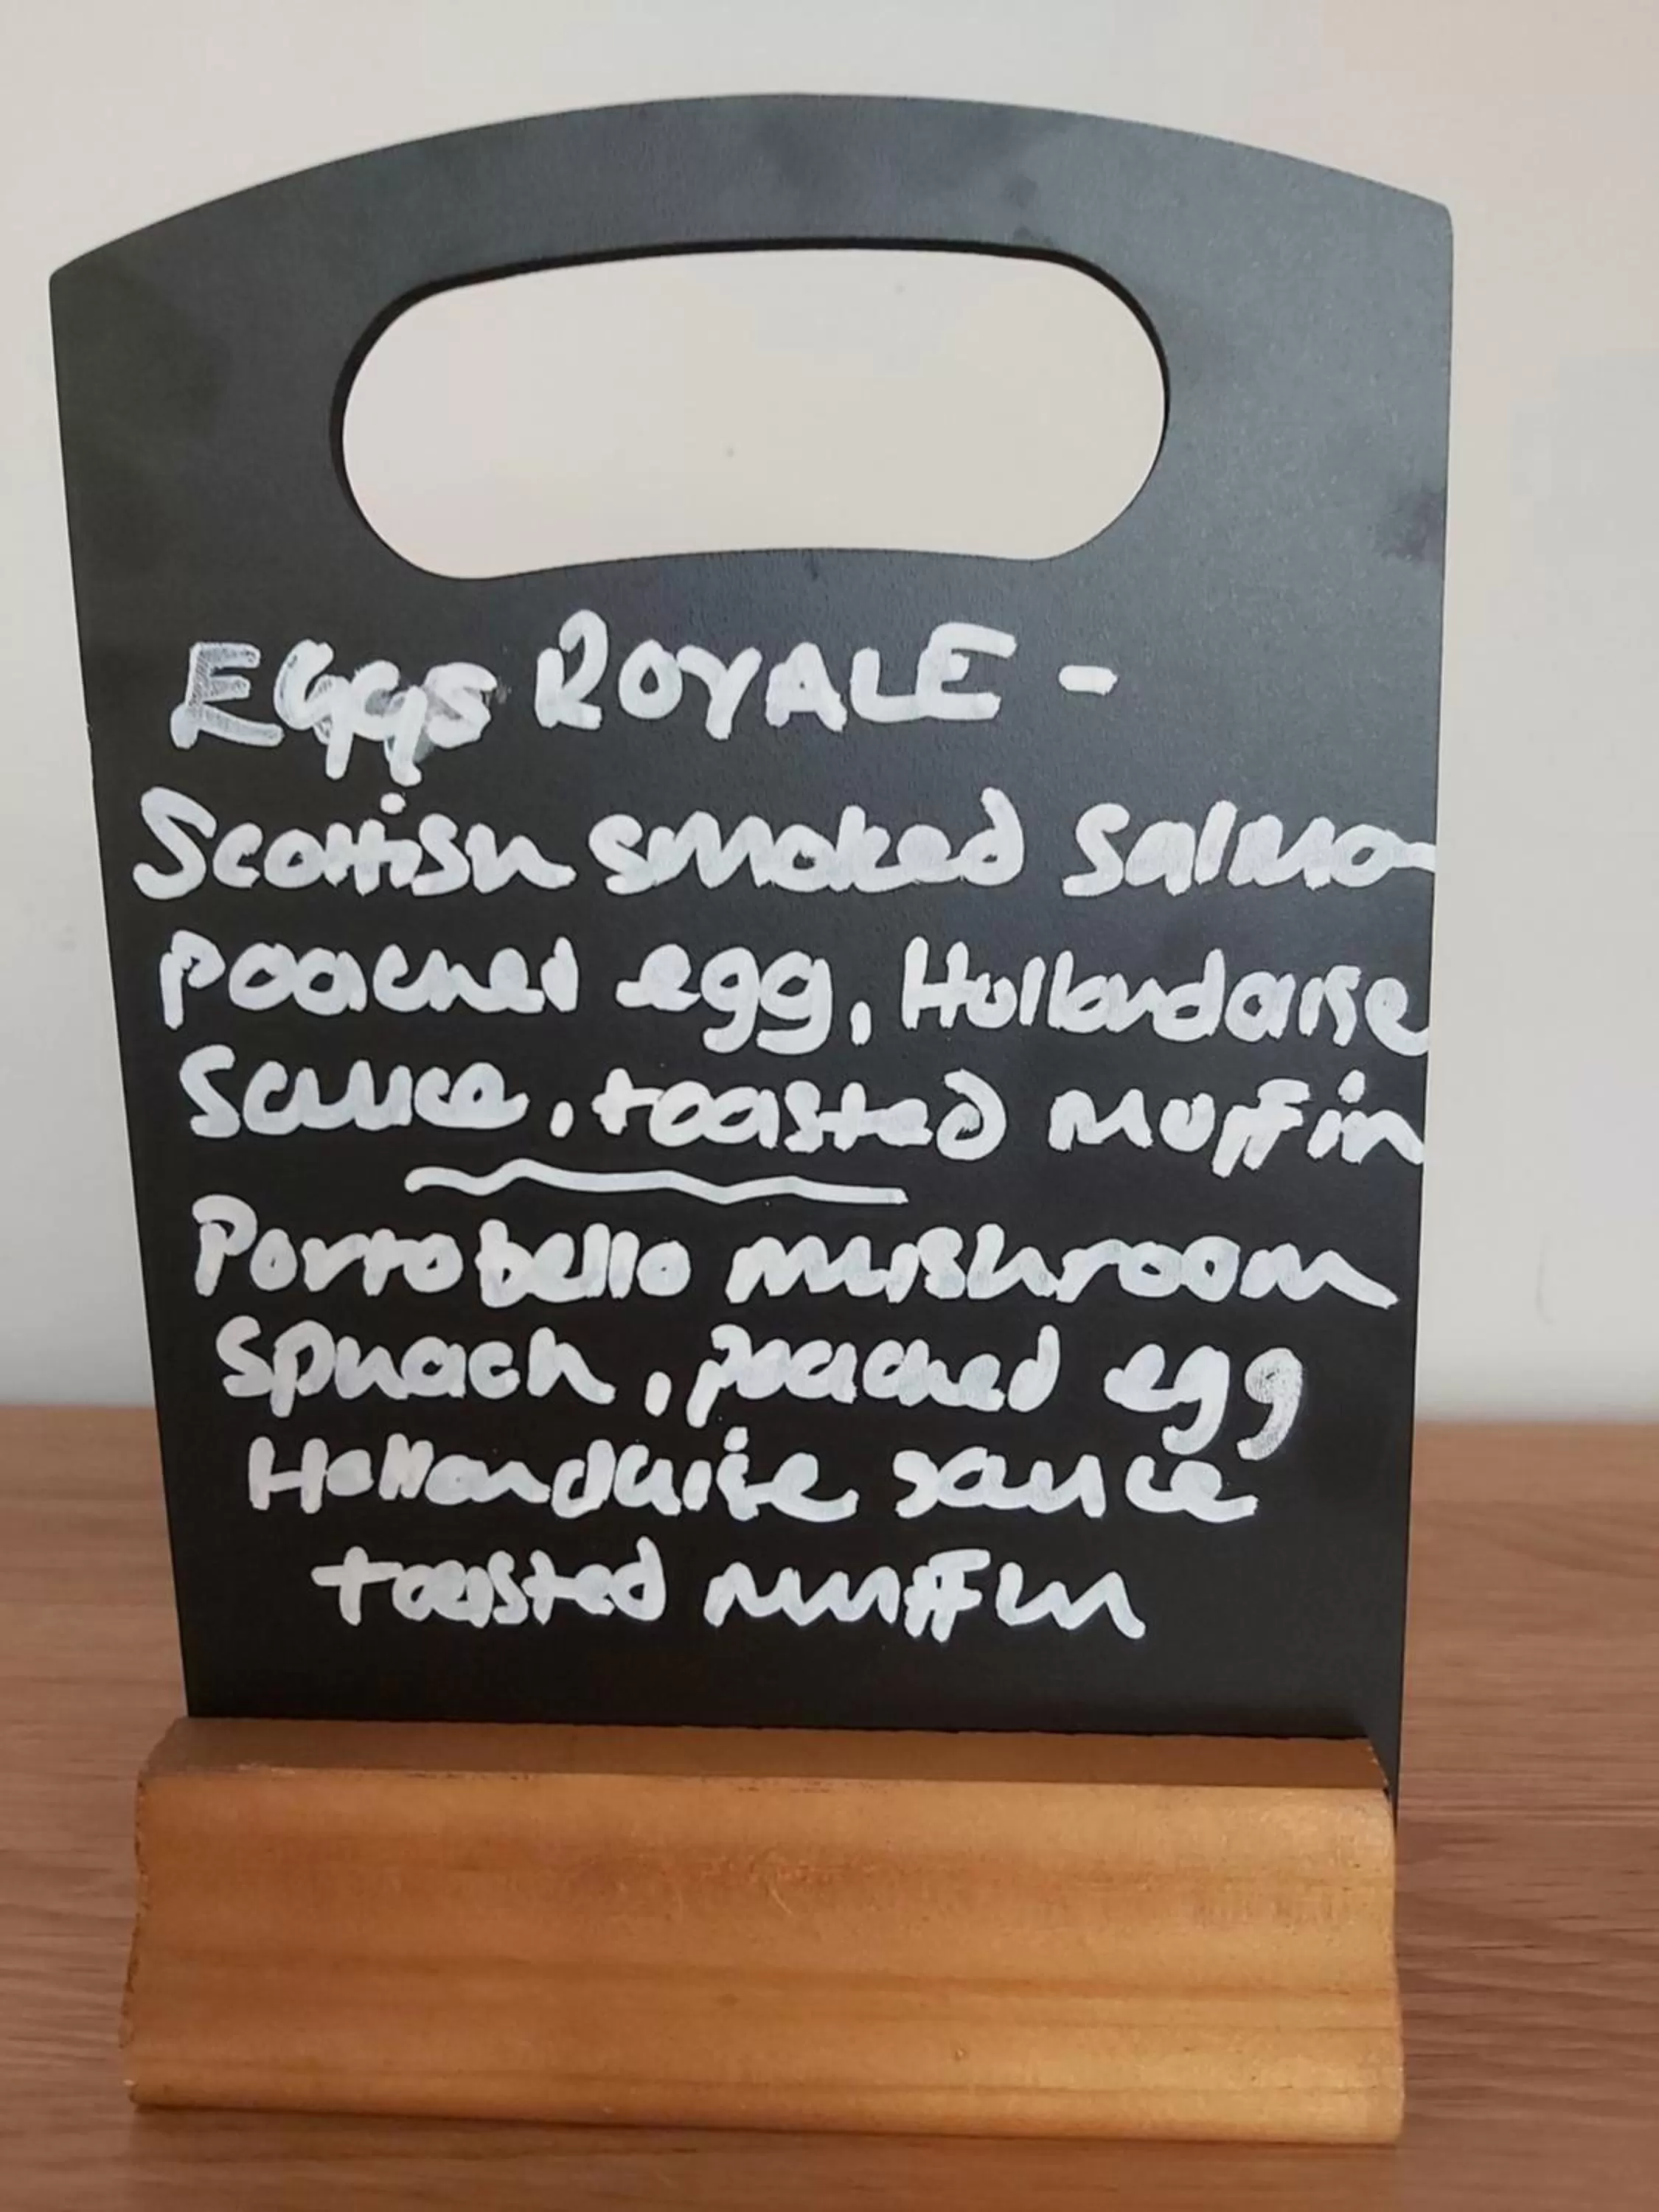 EGGS ROYALE -
Scottish smoked Salmon
poached egg, Hollandaise
Sauce, toasted muffin
Portobello mushroom
Spinach, poached egg
Hollandaise sauce
toasted muffin